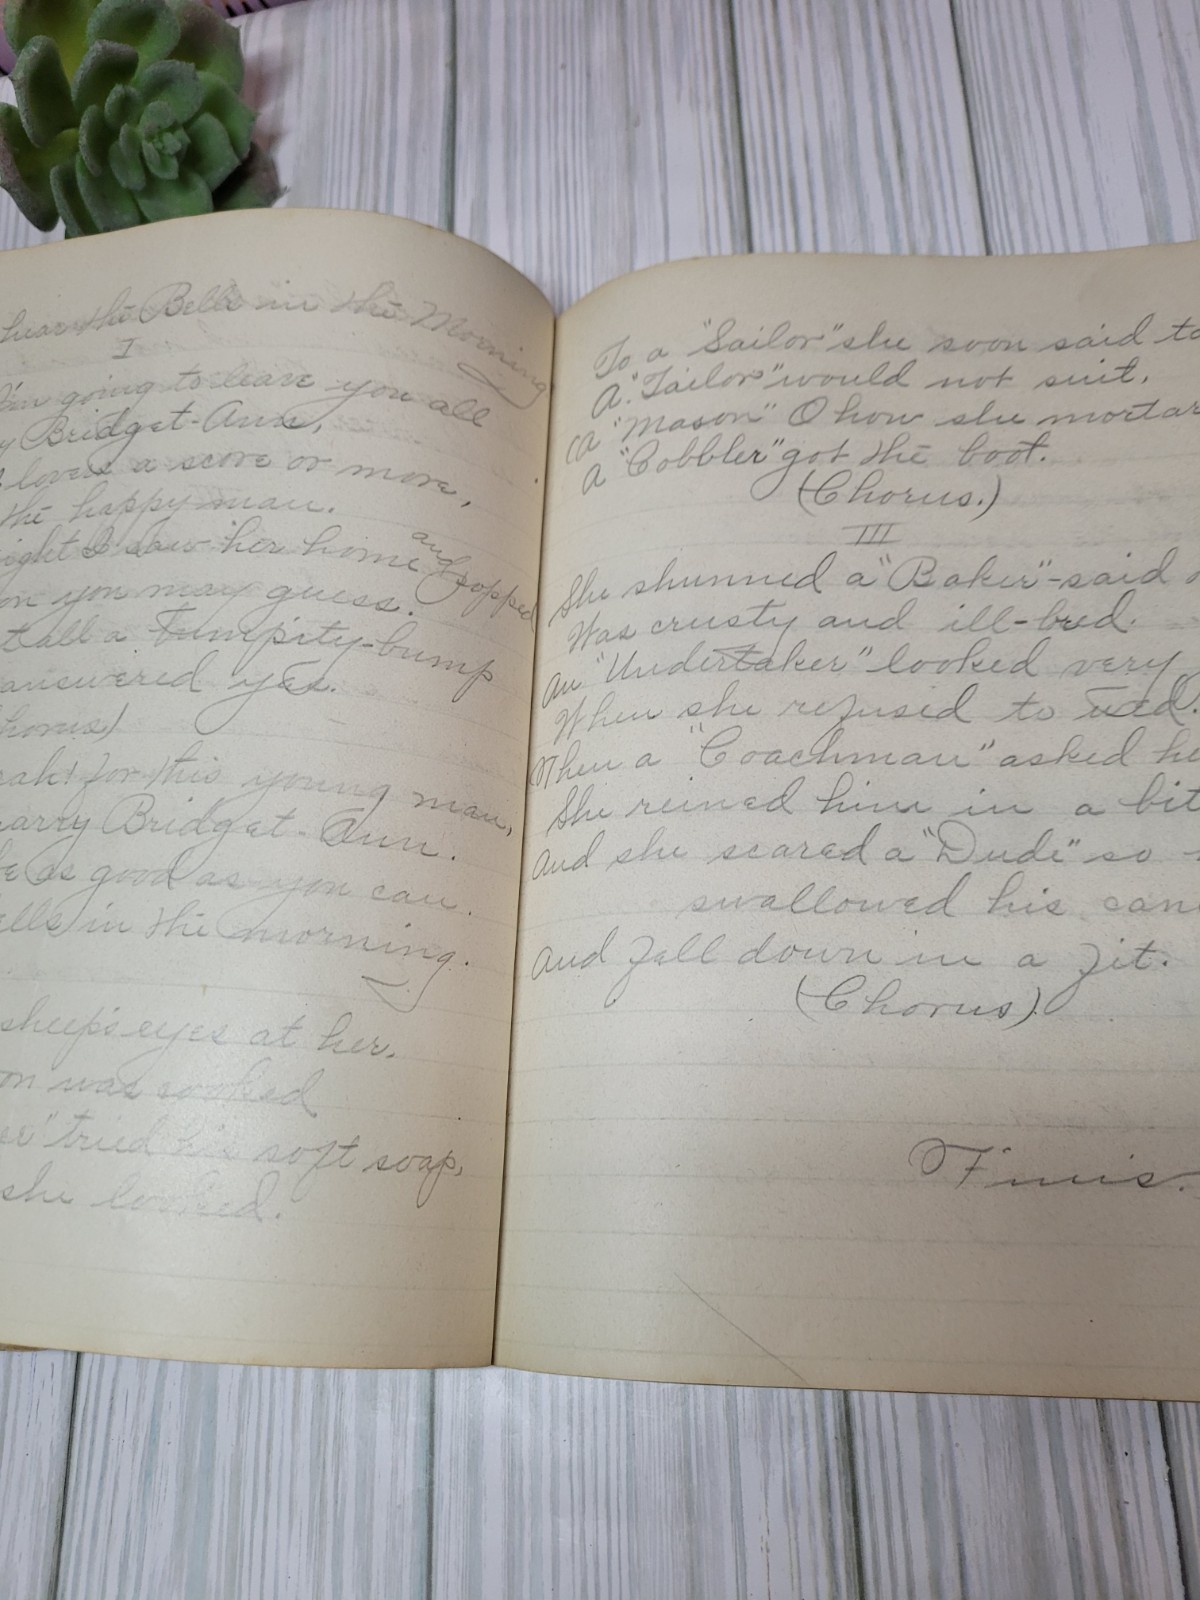 hear the Bells in the Morning
I
I'm going to leave you all
Bridget-Ann,
loves a score or more,
the happy man.
I saw her home and popped
you may guess.
all a Tumpity-bump
answered yes.
for this young man,
Bridget-Ann.
as good as you can.
in the morning.
sheep's eyes at her.
was cooked
tried his soft soap,
she looked.
To a "Sailor" she soon said ta
A "Tailor" would not suit.
(A "Mason" O how she mortar
A "Cobbler" got the boot.
(Chorus.)
III
She shunned a "Baker"-said
Was crusty and ill-bred.
An "Undertaker" looked very
When she refused to wed.
When a "Coachman" asked he
She reined him in a bit
And she scared a "Dude" so
swallowed his cane
And fell down in a fit.
(Chorus)
Finis.